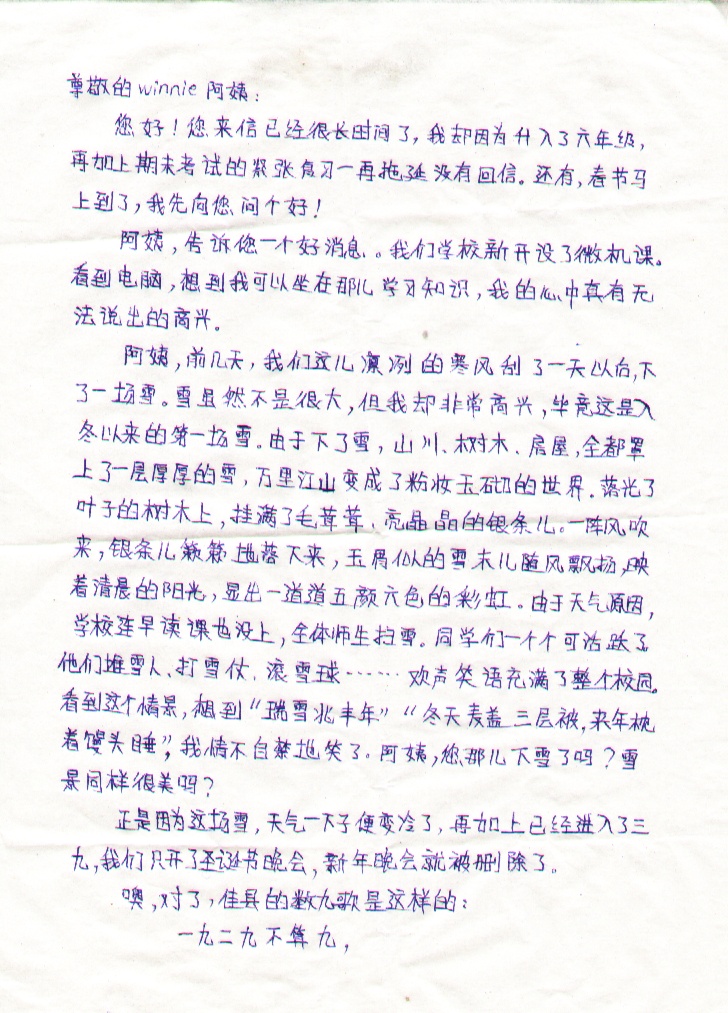 尊敬的winnie阿姨：
您好！您来信已经很长时间了，我却因为升入了六年级，
再加上期末考试的紧张复习一再拖延没有回信。还有，春节马
上到了，我先向您问个好！
阿姨，告诉您一个好消息。我们学校新开设了微机课。
看到电脑，想到我可以坐在那儿学习知识，我的心中真有无
法说出的高兴。
阿姨，前几天，我们这儿凛冽的寒风刮了一天以后，下
了一场雪。雪虽然不是很大，但我却非常高兴，毕竟这是入
冬以来的第一场雪。由于下了雪，山川、树木、房屋，全都罩
上了一层厚厚的雪，万里江山变成了粉妆玉砌的世界。落光了
叶子的树木上，挂满了毛茸茸、亮晶晶的银条儿。一阵风吹
来，银条儿簌簌地落下来，玉屑似的雪末儿随风飘扬，映
着清晨的阳光，显出一道道五颜六色的彩虹。由于天气原因，
学校连早读课也没上，全体师生扫雪。同学们一个个可活跃了，
他们堆雪人、打雪仗、滚雪球……欢声笑语充满了整个校园。
看到这个情景，想到“瑞雪兆丰年”“冬天麦盖三层被，来年枕
着馒头睡”，我情不自禁地笑了。阿姨，您那儿下雪了吗？雪
景同样很美吗？
正是因为这场雪，天气一下子便变冷了，再加上已经进入了三
九，我们只开了圣诞节晚会，新年晚会就被删除了。
噢，对了，佳县的数九歌是这样的：
一九二九不算九，